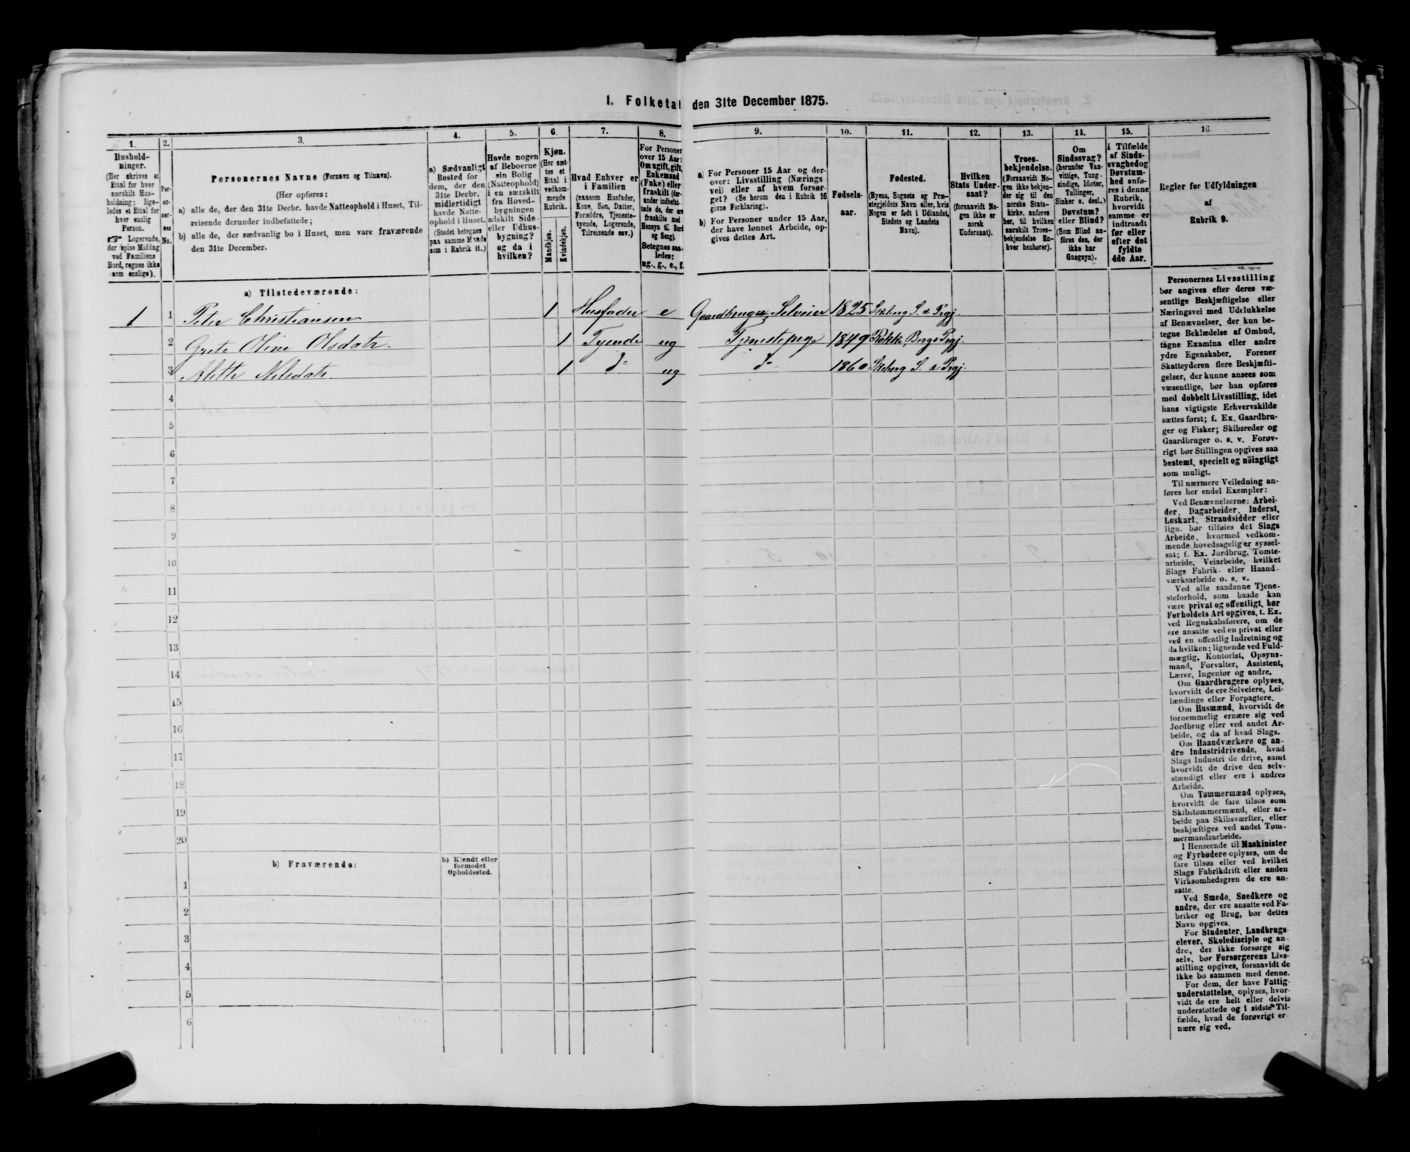 I. Folketæ
den 31te December 1875.
1.
2.
3.
4.
5.
6.
7.
8.
9.
10.
11.
12.
13.
14.
15.
16.
Hushold-
ninger.
(Her skrives et
Ettal for hver
særskilt Hus-
holdning; lige-
ledes et Ettal for
hver enslig
Person.
☞ Logerende,
der spise Middag
ved Familiens
Bord, regnes ikke
som enslige).
Per-
No.
Personernes Navne (Fornavn og Tilnavn).
(Her opføres:
a) alle de, der den 31te Decbr. havde Natteophold i Huset, Til-
reisende derunder indbefattede;
b) alle de, der sædvanlig bo i Huset, men vare fraværende
den 31te December.
a) Sædvanligt
Bosted for
dem, der den
31te Decbr.
midlertidigt
havde Natte-
ophold i Huset.
(Stedet betegnes
paa samme Maade
som i Rubrik 11.)
Havde nogen
af Beboerne
sin Bolig
(Natteophold)
i en særskilt
fra Hoved-
bygningen
adskilt Side-
eller Udhus-
bygning?
og da i
hvilken?
Kjøn.
(Her sæt-
tes et
Ettal i
vedkom-
mende
Rubrik.
Mandkjøn.
Kvindekjøn.
Hvad Enhver er
i Familien
(saasom Husfader,
Kone, Søn, Datter,
Forældre, Tjeneste-
tyende, Logerende,
Tilreisende osv.)
For Personer
over 15 Aar:
Om ugift, gift,
Enkemand
(Enke) eller
fraskilt
Betegnes saa-
ledes:
ug., g., e., f.
a) For Personer 15 Aar og der-
over: Livsstilling (Nærings-
vei) eller af hvem forsør-
get? (Se herom den i Rubrik 16
givne Forklaring).
b) For Personer under 15 Aar,
der have lønnet Arbeide, op-
gives dettes Art.
Fødsels-
aar.
Fødested.
(Byens, Sognets og Præ-
stegjeldets Navn eller, hvis
Nogen er født i Udlandet,
Stedets og Landets
Navn).
Hvilken
Stats Under-
saat?
(forsaavidt No-
gen ikke er
norsk
Undersaat).
Troes-
bekjendelse.
(Forsaavidt No-
gen ikke bekjen-
der sig til den
norske Stats-
kirke, anføres
her, til hvilken
særskilt Troes-
bekjendelse En-
hver henhører).
Om
Sindssvag?
(herunder Van-
vittige, Tung-
sindige, Idioter,
Tullinger,
Sinker o. desl.)
Døvstum?
eller Blind?
(Som Blind an-
føres den, der
ikke har
Gangsyn).
I Tilfælde
af Sinds-
svaghed og
Døvstum-
hed anfø-
res i denne
Rubrik,
hvorvidt
samme er
indtraadt
før eller
efter det
fyldte
4de Aar.
Regler for Udfyldningen
af
Rubrik 9.
a) Tilstedeværende:
1 1 Peter Christiansen 1 Husfader e Gaardbruger, Selveier 1825
2 Grete Oline Olsdatr. 1 Tyende ug Tjenestepige 1849 Rakke Bergs Prgj.
3 Alette Nilsdatr. 1 do ug do 1860
4
5
6
7
8
9
10
11
12
13
14
15
16
17
18
19
20
b) Fraværende:
b) Kjendt eller
formodet
Opholdssted.
1
2
3
4
5
6
Personernes Livsstilling
bør angives efter deres væ-
sentlige Beskjæftigelse eller
Næringsvei med Udelukkelse
af Benævnelser, der kun be-
tegne Beklædelse af Ombud,
tagne Examina eller andre
ydre Egenskaber. Forener
Skatteyderen flere Beskjæfti-
gelser, der kunne ansees som
væsentlige, bør han opføres
med dobbelt Livsstilling, idet
hans vigtigste Erhvervskilde
sættes først; f. Ex. Gaardbru-
ger og Fisker; Skibsreder og
Gaardbruger o. s. v. Forøv-
rigt bør Stillingen opgives saa
bestemt, specielt og nøiagtigt
som muligt.
Til nærmere Veiledning an-
føres her endel Exempler:
Ved Benævnelserne: Arbei-
der, Dagarbeider, Inderst,
Løskarl, Strandsidder eller
lign. bør tilføies det Slags
Arbeide, hvormed vedkom-
mende hovedsageligt er syssel-
sat; f. Ex. Jordbrug, Tomte-
arbeide, Veiarbeide, hvilket
Slags Fabrik- eller Haand-
værksarbeide o. s. v.
Ved alle saadanne Tjene-
steforhold, som baade kan
være privat og offentligt, bør
Forholdets Art opgives, t. Ex.
ved Regnskabsførere, om de
ere ansatte ved en privat eller
ved en offentlig Indretning og
da hvilken; lignende ved Fuld-
mægtig, Kontorist, Opsyns-
mand, Forvalter, Assistent,
Lærer, Ingeniør og andre.
Om Gaardbrugere oplyses,
hvorvidt de ere Selveiere, Lei-
lændinge eller Forpagtere.
Om Husmænd, hvorvidt de
fornemmelig ernære sig ved
Jordbrug eller ved andet Ar-
beide, og da af hvad Slags.
Om Haandværkere og an-
dre Industridrivende, hvad
Slags Industri de drive, samt
hvorvidt de drive den selv-
stændigt eller ere i andres
Arbeide.
Om Tømmermænd oplyses,
hvorvidt de fare tilsøs som
Skibstømmermænd, eller ar-
beide paa Skibsværfter, eller
beskjæftiges ved andet Tøm-
mermandsarbeide.
I Henseende til Maskinister
og Fyrbødere oplyses, om de
fare tilsøs eller ved hvilket
Slags Fabrikdrift eller anden
Virksomhedsgren de ere an-
satte.
Ved Smede, Snedkere og
andre, der ere ansatte ved Fa-
briker og Brug, bør dettes
Navn opgives.
For Studenter, Landbrugs-
elever, Skoledisciple og an-
dre, der ikke forsørge sig
selv, bør Forsørgerens Livs-
stilling opgives, forsaavidt de
ikke bo sammen med denne.
For dem, der have Fattig-
understøttelse, oplyses, hvor-
vidt de ere helt eller delvis
understøttede og i sidste Til-
fælde, hvad de forøvrigt er-
nære sig ved.